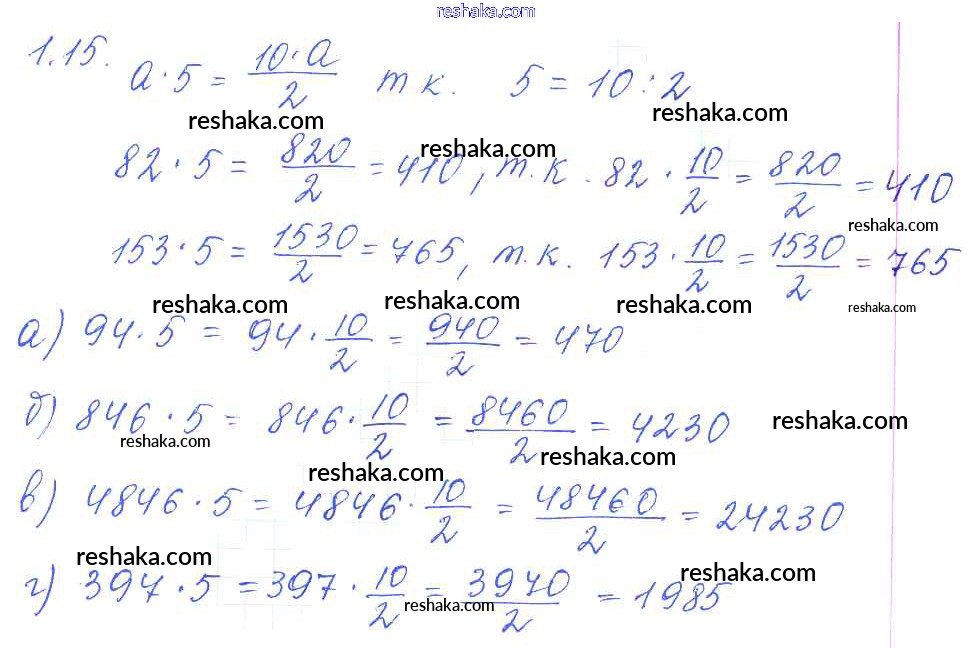 reshaka.com
1.15. a·5 = 10·a/2 т к. 5 = 10:2
reshaka.com reshaka.com
82·5 = 820/2 = 410, т.к. 82·10/2 = 820/2 = 410
reshaka.com
reshaka.com
153·5 = 1530/2 = 765, т.к. 153·10/2 = 1530/2 = 765
reshaka.com reshaka.com reshaka.com reshaka.com
а) 94·5 = 94·10/2 = 940/2 = 470
б) 846·5 = 846·10/2 = 8460/2 = 4230
reshaka.com
reshaka.com reshaka.com
reshaka.com
в) 4846·5 = 4846·10/2 = 48460/2 = 24230
reshaka.com
г) 397·5 = 397·10/2 = 3970/2 = 1985
reshaka.com
reshaka.com